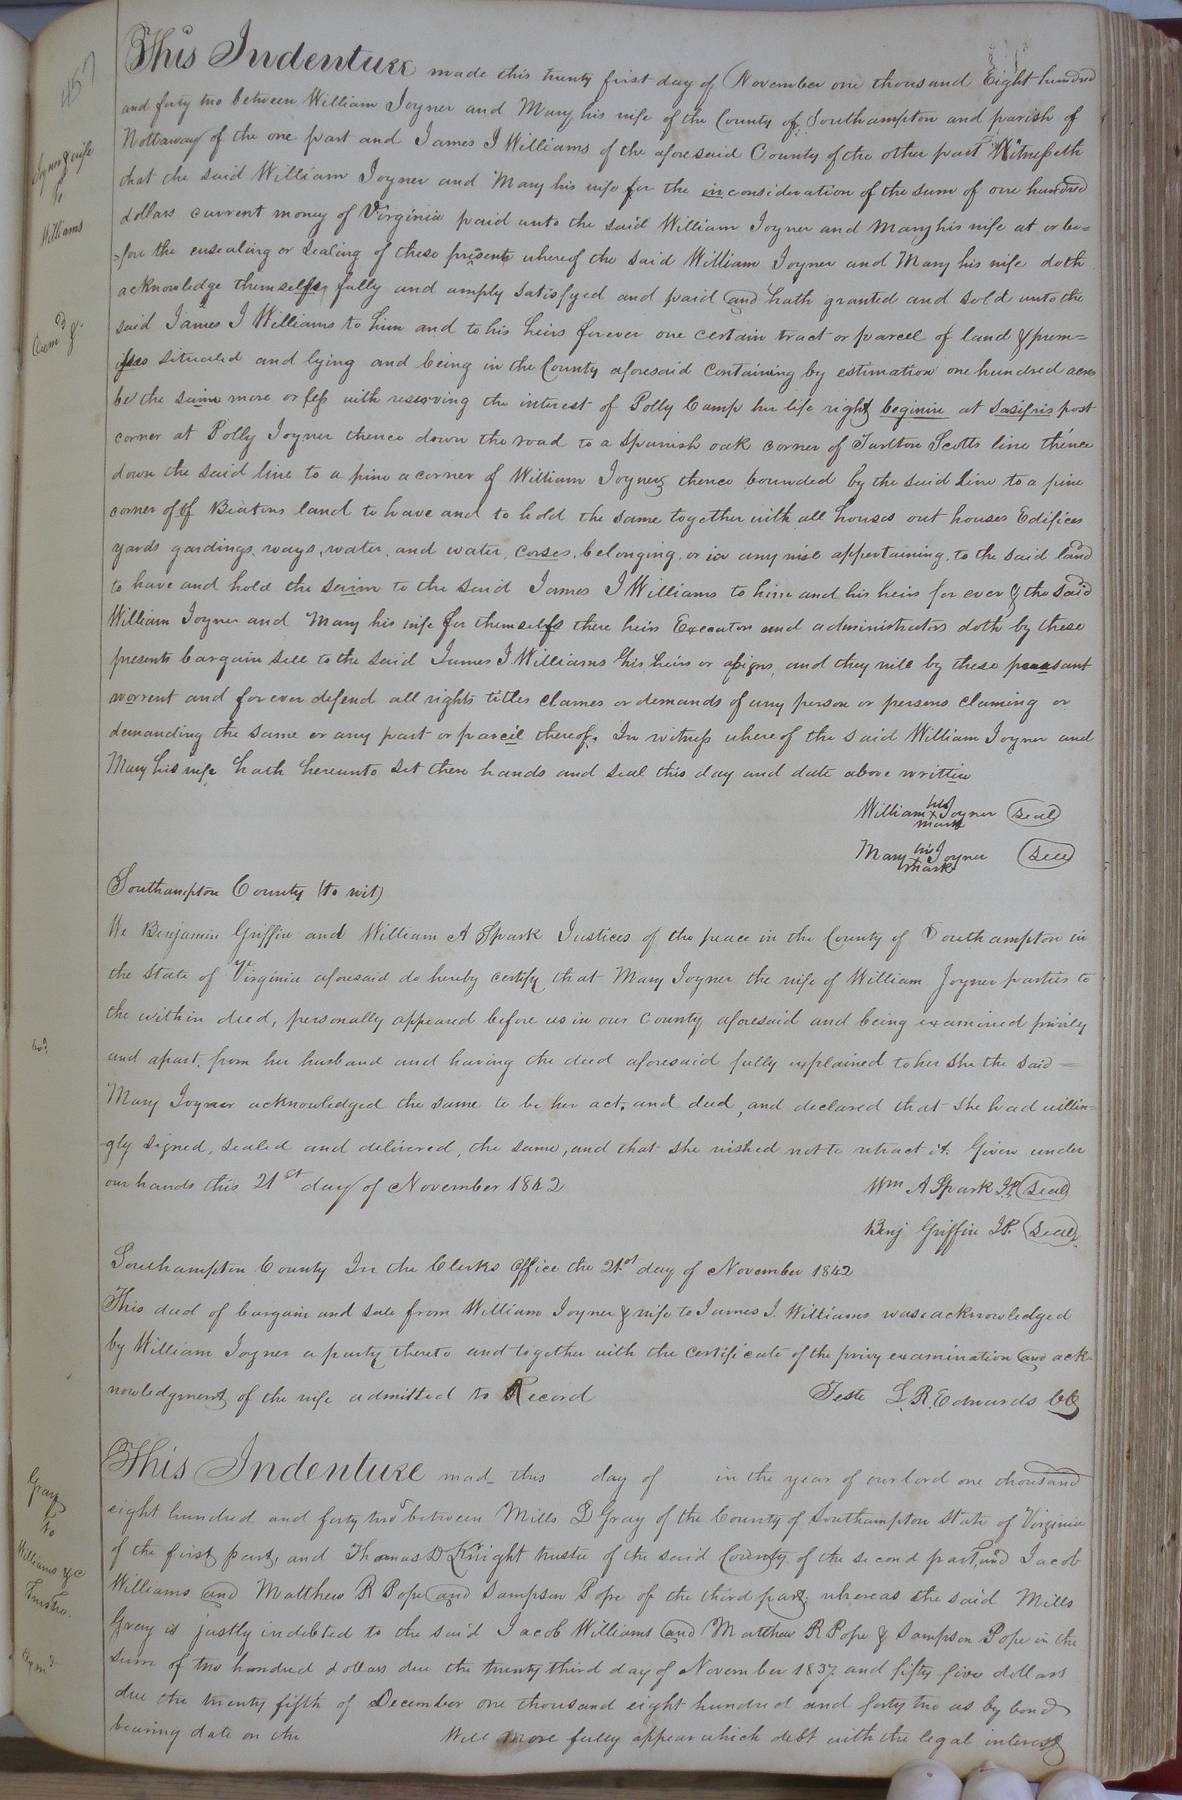 457
Joyner & wife
to
Williams
This Indenture made this twenty first day of November one thousand Eight hundred
and forty two between William Joyner and Mary his wife of the County of Southampton and parish of
Nottaway of the one part and James J Williams of the aforesaid County of the other part Witnesseth
that the said William Joyner and Mary his wife for the in consideration of the sum of one hundred
dollars current money of Virginia paid unto the said William Joyner and Mary his wife at or be=
=fore the ensealing or sealing of these presents whereof the said William Joyner and Mary his wife doth
acknowledge themselfs fully and amply satisfyed and paid and hath granted and sold unto the
said James J Williams to him and to his heirs forever one certain tract or parcel of land & prem=
ises situated and lying and being in the County aforesaid containing by estimation one hundred acres
be the saime more or less with reserving the interest of Polly Camp her life right beginie at sasifris post
corner at Polly Joyner thence down the road to a Spanish oak corner of Turlton Scotts line thence
down the said line to a pine a corner of William Joyners thence bounded by the said line to a pine
corner off of Beatons land to have and to hold the same together with all houses out houses Edifices
yards gardings, ways, water, and water, corses, belonging, or in any wise appertaining, to the said land
to have and hold the saim to the said James J Williams to him and his heirs for ever & the said
William Joyner and Mary his wife for themselfs there heirs Executors and administrators doth by these
presents bargain sell to the said James J Williams his heirs or assigns, and they will by these preasant
worrent and for ever defend all rights titles clames or demands of any person or persons claming or
demanding the same or any part or parceil thereof. In witness whereof the said William Joyner and
Mary his wife hath hereunto set there hands and seal this day and date above writtin
William his x mark Joyner seal
Mary his x mark Joyner seal
Southampton County (to wit)
We Benjamin Griffin and William A Spark Justices of the peace in the County of Southampton in
the State of Virginia aforesaid do hereby certify that Mary Joyner the wife of William Joyner parties to
the within deed, personally appeared before us in our County aforesaid and being examined privily
and apart, from her husband and having the deed aforesaid fully explained to her she the said
Mary Joyner acknowledged the same to be her act, and deed, and declared that she had willin=
gly signed, sealed and delivered, the same, and that she wished not to retract it. Given under
our hands this 21st day of November 1842
Wm A Spark JP. seal
Benj Griffin JP. seal
Southampton County In the Clerks Office the 21st day of November 1842
This deed of bargain and sale from William Joyner & wife to James J. Williams was acknowledged
by William Joyner a party thereto and together with the certificate of the privy examination and ack-
nowledgment of the wife admitted to Record
Teste L. R. Edwards CC
Gray
to
Williams &c
Trustee.
This Indenture mad this day of in the year of our lord one thousand
eight hundred and forty two between Mills D Gray of the County of Southampton State of Virginia
of the first part, and Thomas D Knight trustee of the said County of the second part, and Jacob
Williams and Matthew R Pope and Sampson Pope of the third part. whereas the said Mills
Gray is justly indebted to the said Jacob Williams and Matthew R Pope & Sampson Pope in the
sum of two hundred dollars due the twenty third day of November 1837 and fifty five dollars
due the twenty fifth of December one thousand eight hundred and forty two as by bond
bearing date on the Will more fully appear which debt with the legal interest